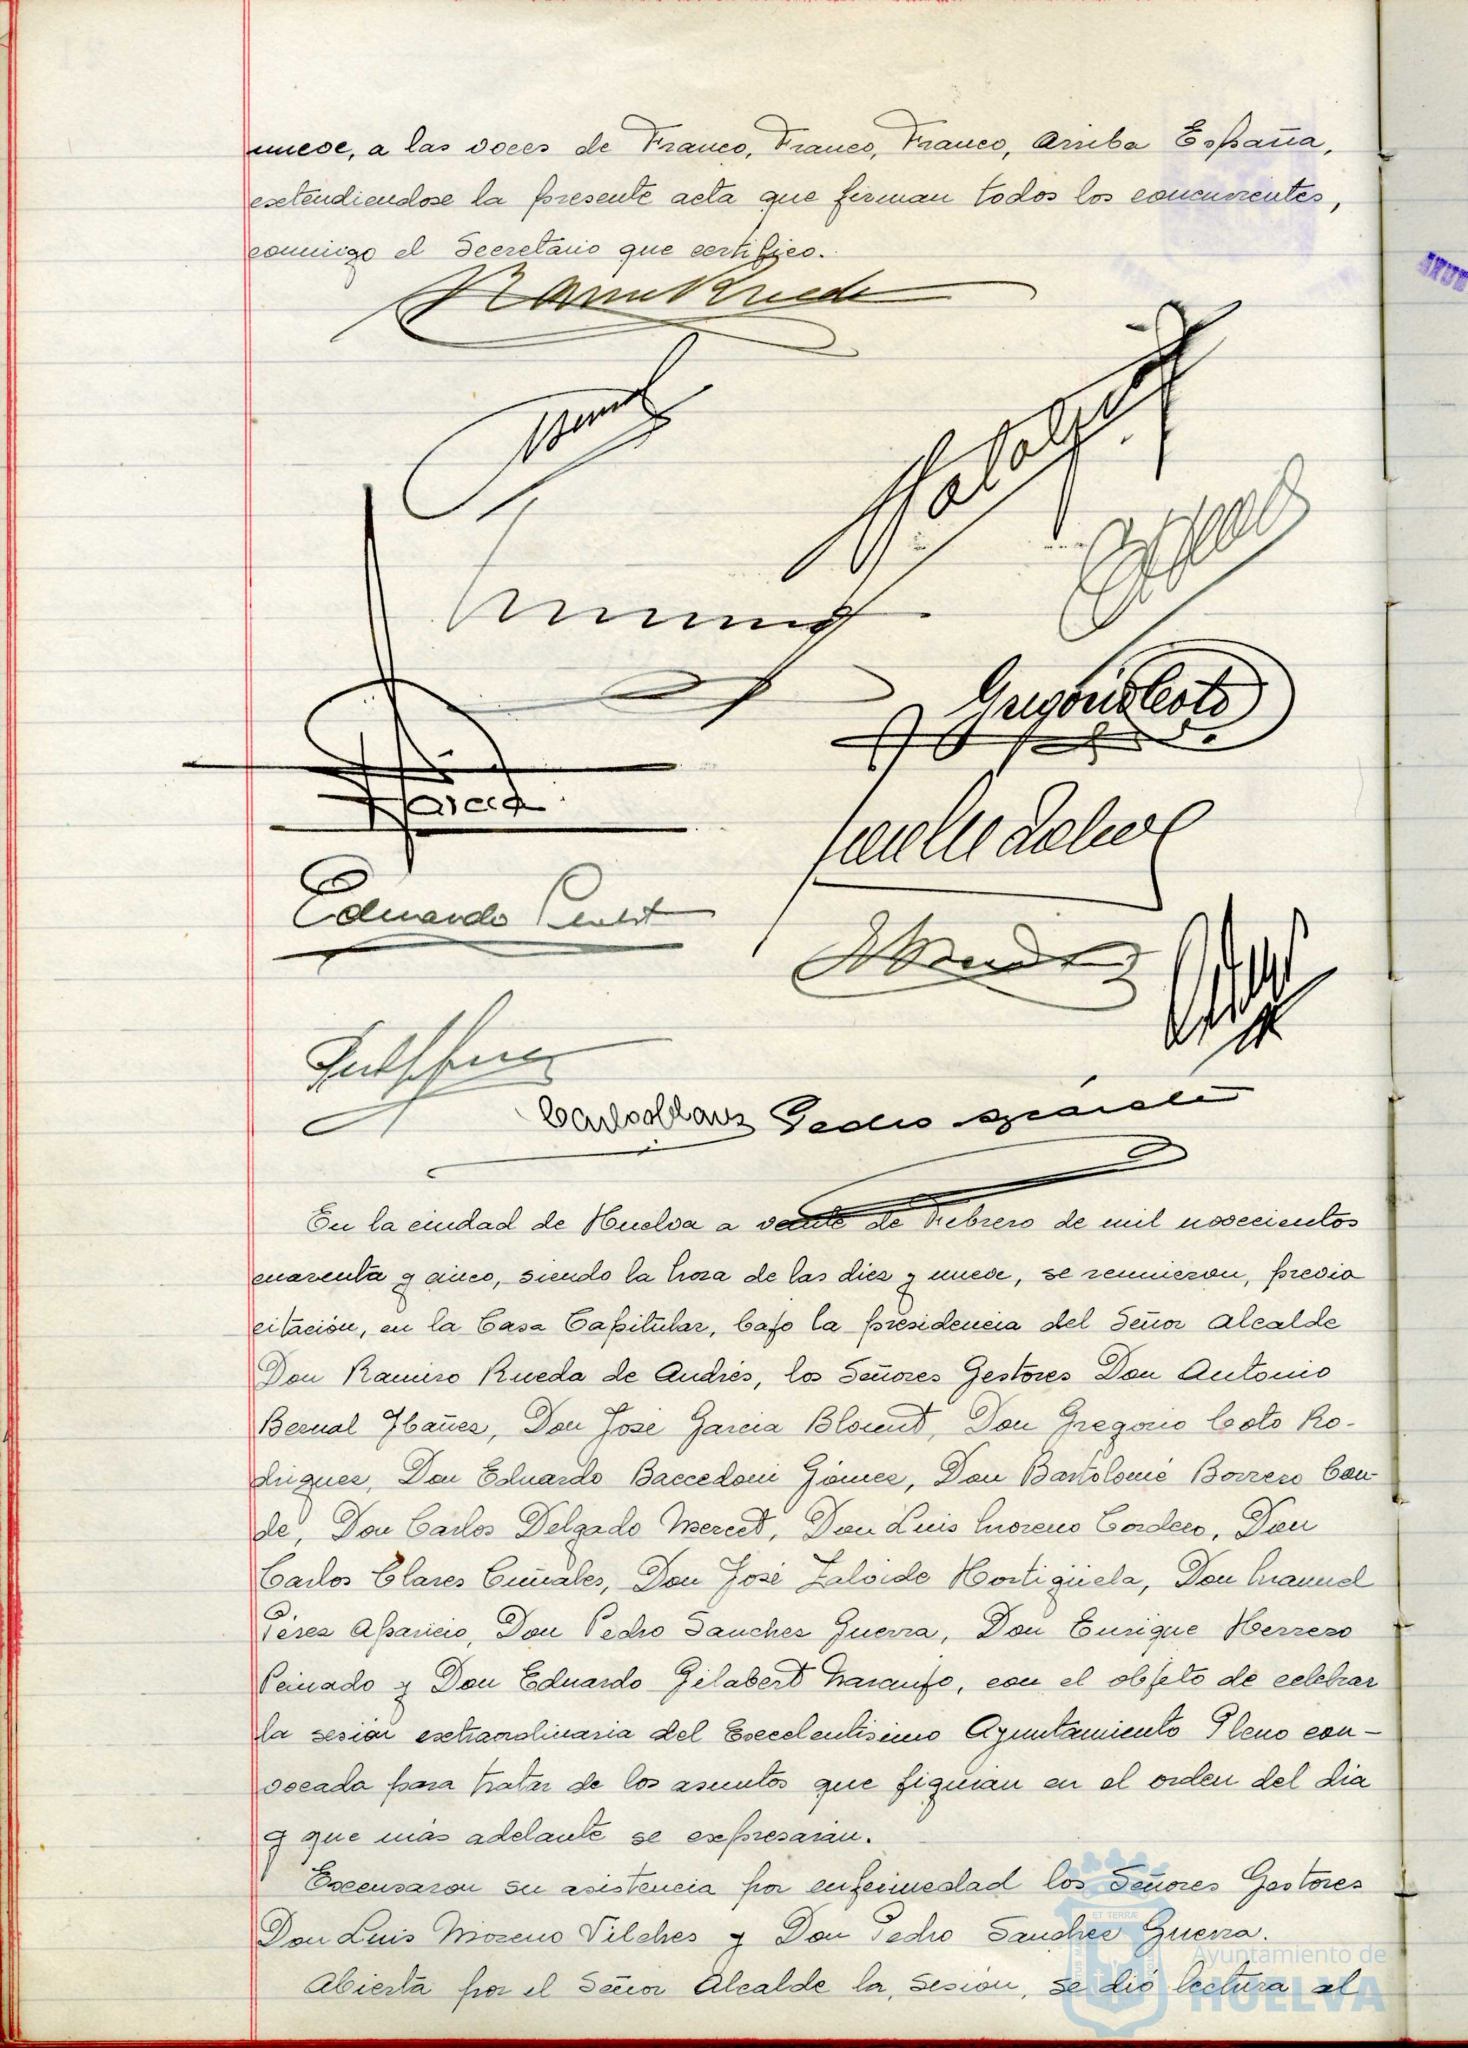 nueve, a las voces de Franco, Franco, Franco, Arriba España,
extendiendose la presente acta que firman todos los concurrentes,
conmigo el Secretario que certifico.
Ramiro Rueda
Gregorio Coto
Garcia
Eduardo
Carlos Clares Pedro
En la ciudad de Huelva a veinte de Febrero de mil novecientos
cuarenta y cinco, siendo la hora de las diez y nueve, se reunieron, previa
citación, en la Casa Capitular, bajo la presidencia del Señor Alcalde
Don Ramiro Rueda de Andrés, los Señores Gestores Don Antonio
Bernal Ibañez, Don José Garcia Blount, Don Gregorio Coto Ro-
driguez, Don Eduardo Baccedoni Gómez, Don Bartolomé Borrero Con-
de, Don Carlos Delgado Mercet, Don Luis Moreno Cordero, Don
Carlos Clares Cuñales, Don José Zalvide Hortigüela, Don Manuel
Pérez Aparicio, Don Pedro Sanchez Guerra, Don Enrique Herrero
Peinado y Don Eduardo Gilabert Naranjo, con el objeto de celebrar
la sesión extraordinaria del Excelentisimo Ayuntamiento Pleno con-
vocada para tratar de los asuntos que figuran en el orden del dia
y que más adelante se expresarán.
Excusaron su asistencia por enfermedad los Señores Gestores
Don Luis Moreno Vilches y Don Pedro Sanchez Guerra.
Abierta por el Señor Alcalde la sesión, se dió lectura al
Ayuntamiento de
HUELVA